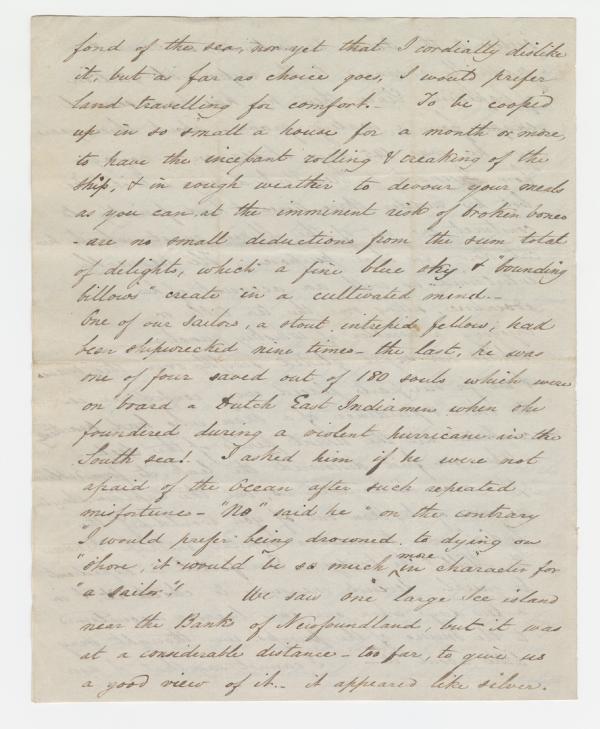 fond of the sea, nor yet that I cordially dislike
it, but as far as choice goes, I would prefer
land travelling for comfort. - To be cooped
up in so small a house for a month or more,
to have the incessant rolling & creaking of the
ship, & in rough weather to devour your meals
as you can, at the imminent risk of broken bones
- are no small deductions from the sum total
of delights, which a fine blue sky & "bounding
billows" create in a cultivated mind. -
One of our sailors, a stout intrepid fellow, had
been shipwrecked nine times - the last, he was
one of four saved out of 180 souls which were
on board a Dutch East Indiaman when she
foundered during a violent hurricane in the
South sea! I asked him if he were not
afraid of the Ocean after such repeated
misfortunes - "No" said he "on the contrary
"I would prefer being drowned to dying on
"shore, it would be so much more in character for
"a sailor"! We saw one large Ice island
near the Banks of Newfoundland, but it was
at a considerable distance - too far, to give us
a good view of it. - it appeared like silver.